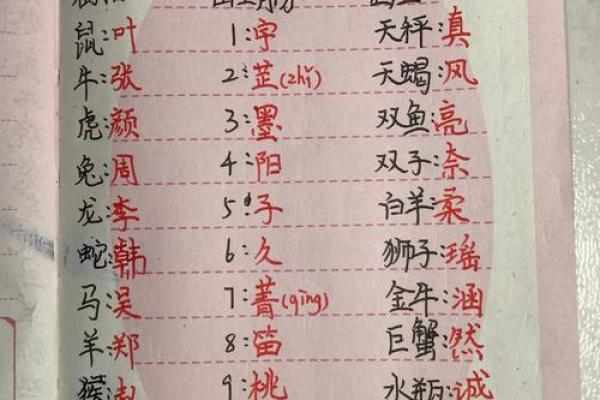 鼠:叶 1:宇 天秤:真
牛:张 2:芷(zhǐ) 天蝎:风
虎:颜 3:墨 双鱼:亮
兔:周 4:阳 双子:奈
龙:李 5:子 白羊:柔
蛇:韩 6:久 狮子:瑶
马:吴 7:菁(qīng) 金牛:涵
羊:郑 8:笛 巨蟹:然
猴:赵 9:桃 水瓶:诚